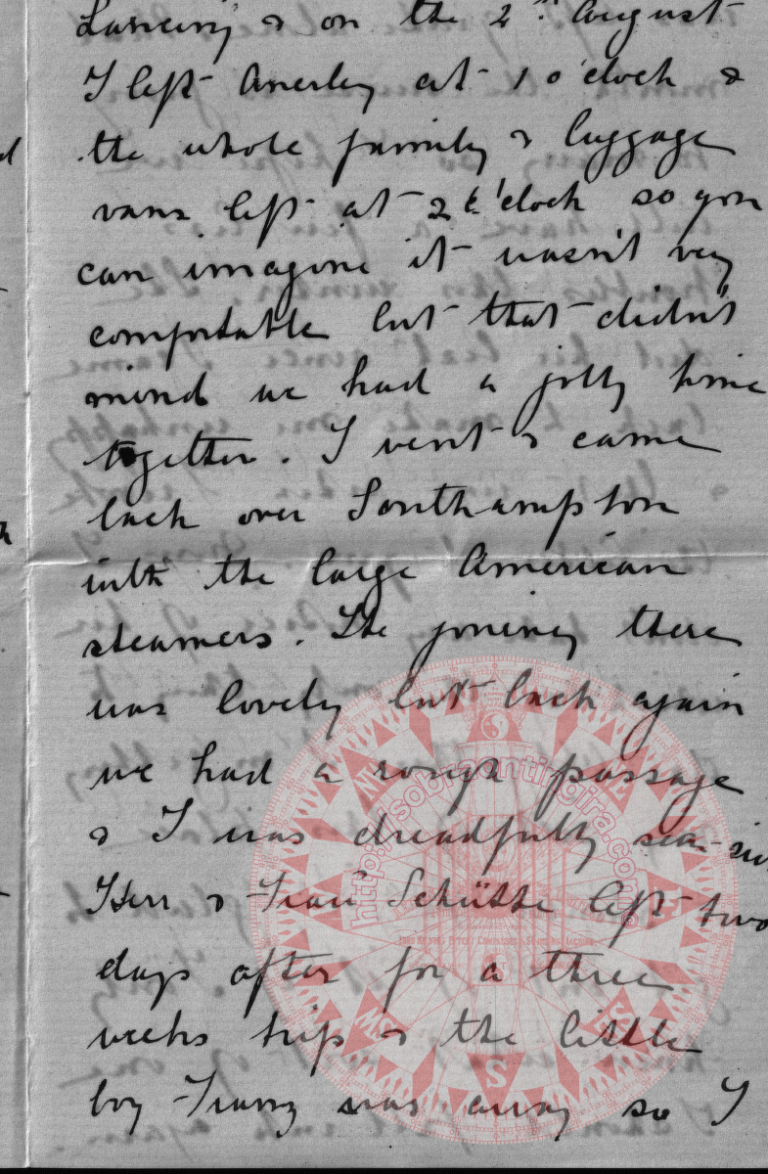 Lancing & on the 2nd August
I left Anerley at 1 o'clock &
the whole family & luggage
vans left at 2 o'clock so you
can imagine it wasn't very
comfortable but that didn't
mind we had a jolly time
together. I went & came
back over Southampton
with the large American
steamers. The journey there
was lovely but back again
we had a rough passage
& I was dreadfully sea-
Herr & Frau Schütte left two
days after for a three
weeks trip & the little
boy Franz was away so I
http://sobreantingira.com/
NE
E
SE
S
SW
NW